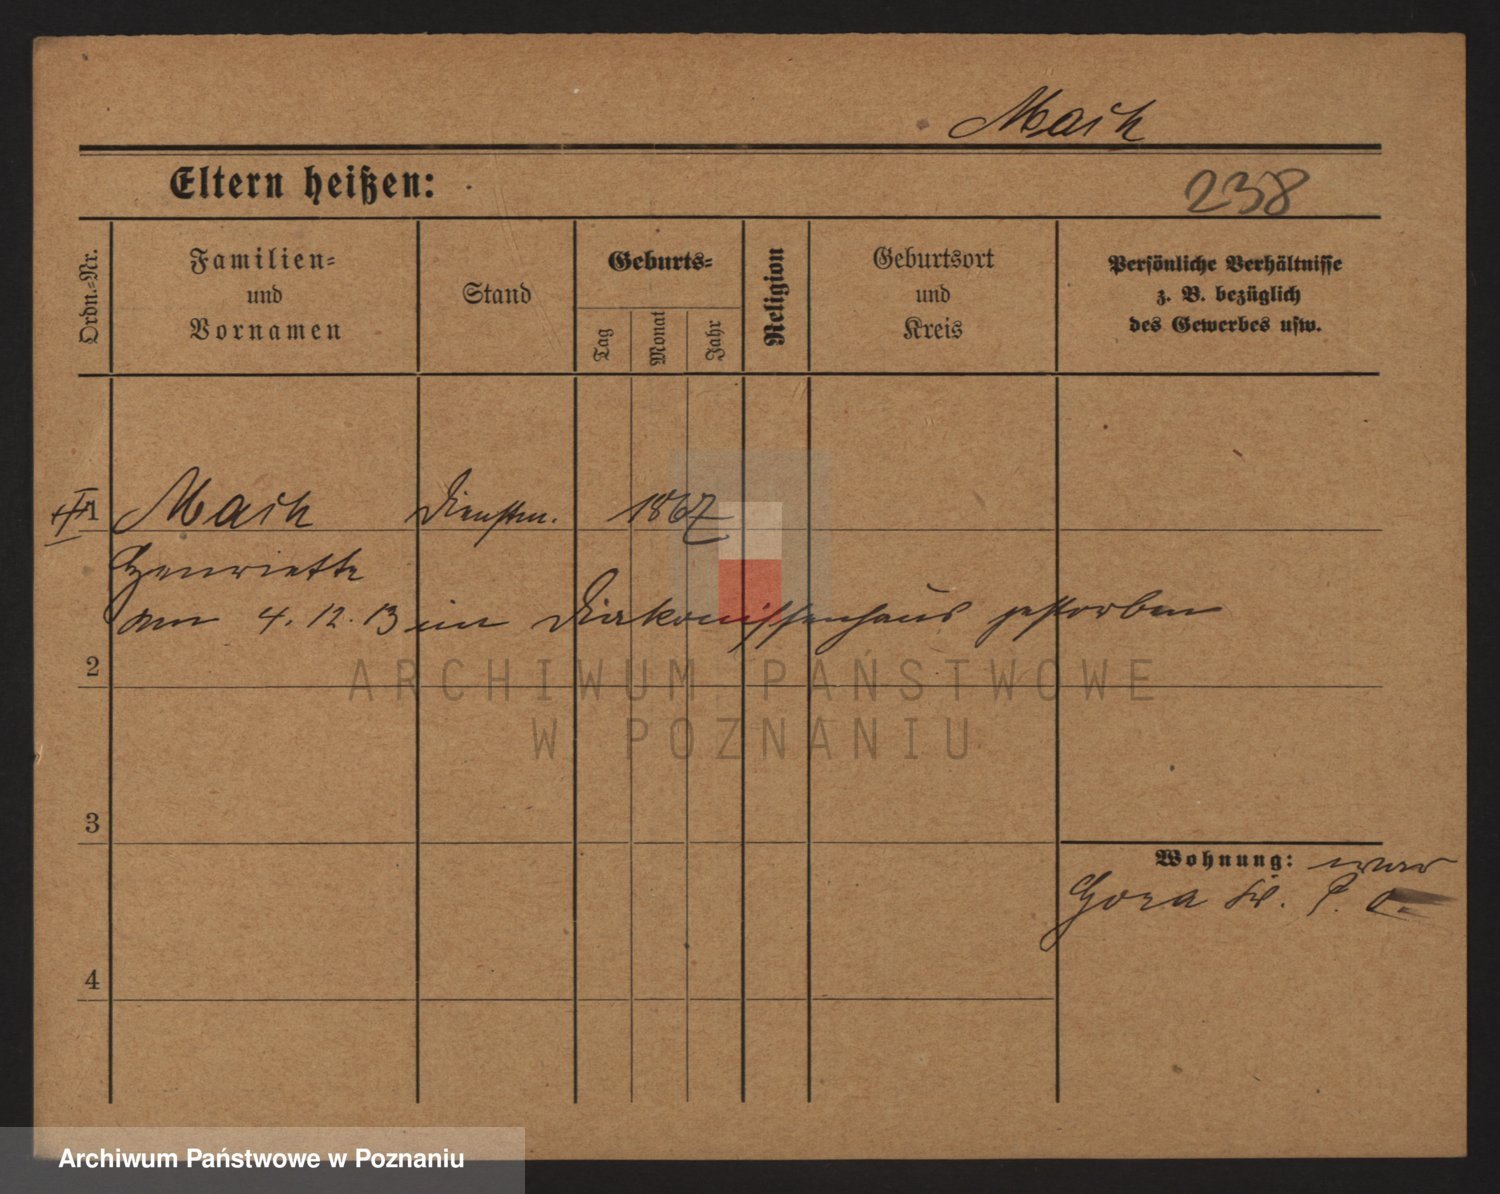 Mach
Eltern heißen:
238
Ordn.-Nr.
Familien-
und
Vornamen
Stand
Geburts-
Tag
Monat
Jahr
Religion
Geburtsort
und
Kreis
Persönliche Verhältnisse
z. B. bezüglich
des Gewerbes usw.
1 Mach Dienstm. 1867
Henriette
am 4.12.13 im Diakonissenhaus gestorben
2
ARCHIWUM PAŃSTWOWE
W POZNANIU
3
Wohnung: war
Gora Kr. P. O.
4
Archiwum Państwowe w Poznaniu